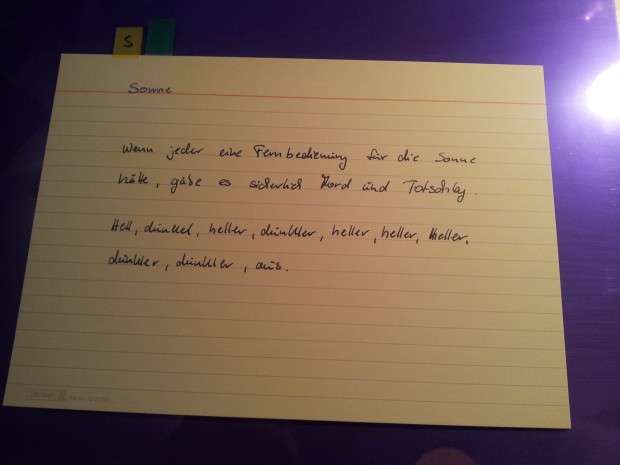 S
Sonne
Wenn jeder eine Fernbedienung für die Sonne
hätte, gäbe es sicherlich Mord und Totschlag.
Hell, dunkel, heller, dunkler, heller, heller, heller,
dunkler, dunkler, aus.